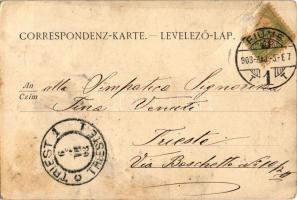 CORRESPONDENZ-KARTE. — LEVELEZŐ-LAP.
FIUME
903
1
An
Czim
alla Simpatica Signorina
Fina
Trieste
Via Boschetto No
TRIEST 1
TRIESTE 1